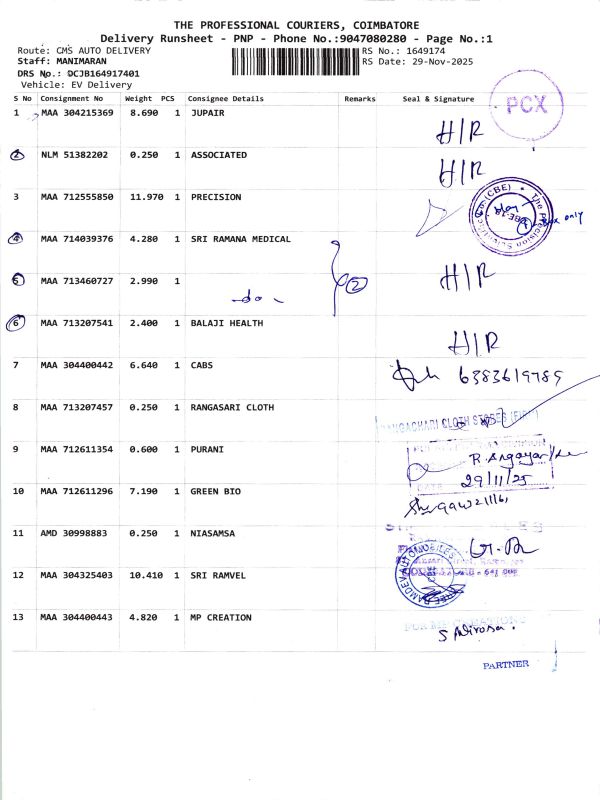 THE PROFESSIONAL COURIERS, COIMBATORE
Delivery Runsheet - PNP - Phone No.:9047080280 - Page No.:1
Route: CMS AUTO DELIVERY
RS No.: 1649174
Staff: MANIMARAN
RS Date: 29-Nov-2025
DRS No.: DCJB164917401
Vehicle: EV Delivery
S No Consignment No Weight PCS Consignee Details Remarks Seal & Signature
PCX
1 MAA 304215369 8.690 1 JUPAIR H/R
2 NLM 51382202 0.250 1 ASSOCIATED H/R
3 MAA 712555850 11.970 1 PRECISION
(CBE) The Precision Scientific box only
4 MAA 714039376 4.280 1 SRI RAMANA MEDICAL
5 MAA 713460727 2.990 1 -do- 2 H/R
6 MAA 713207541 2.400 1 BALAJI HEALTH H/R
7 MAA 304400442 6.640 1 CABS 6383619789
8 MAA 713207457 0.250 1 RANGASARI CLOTH
RANGACHARI CLOTH STORES
9 MAA 712611354 0.600 1 PURANI
DATE 29/11/25
10 MAA 712611296 7.190 1 GREEN BIO
11 AMD 30998883 0.250 1 NIASAMSA
12 MAA 304325403 10.410 1 SRI RAMVEL
AUTOMOBILES
13 MAA 304400443 4.820 1 MP CREATION
PARTNER